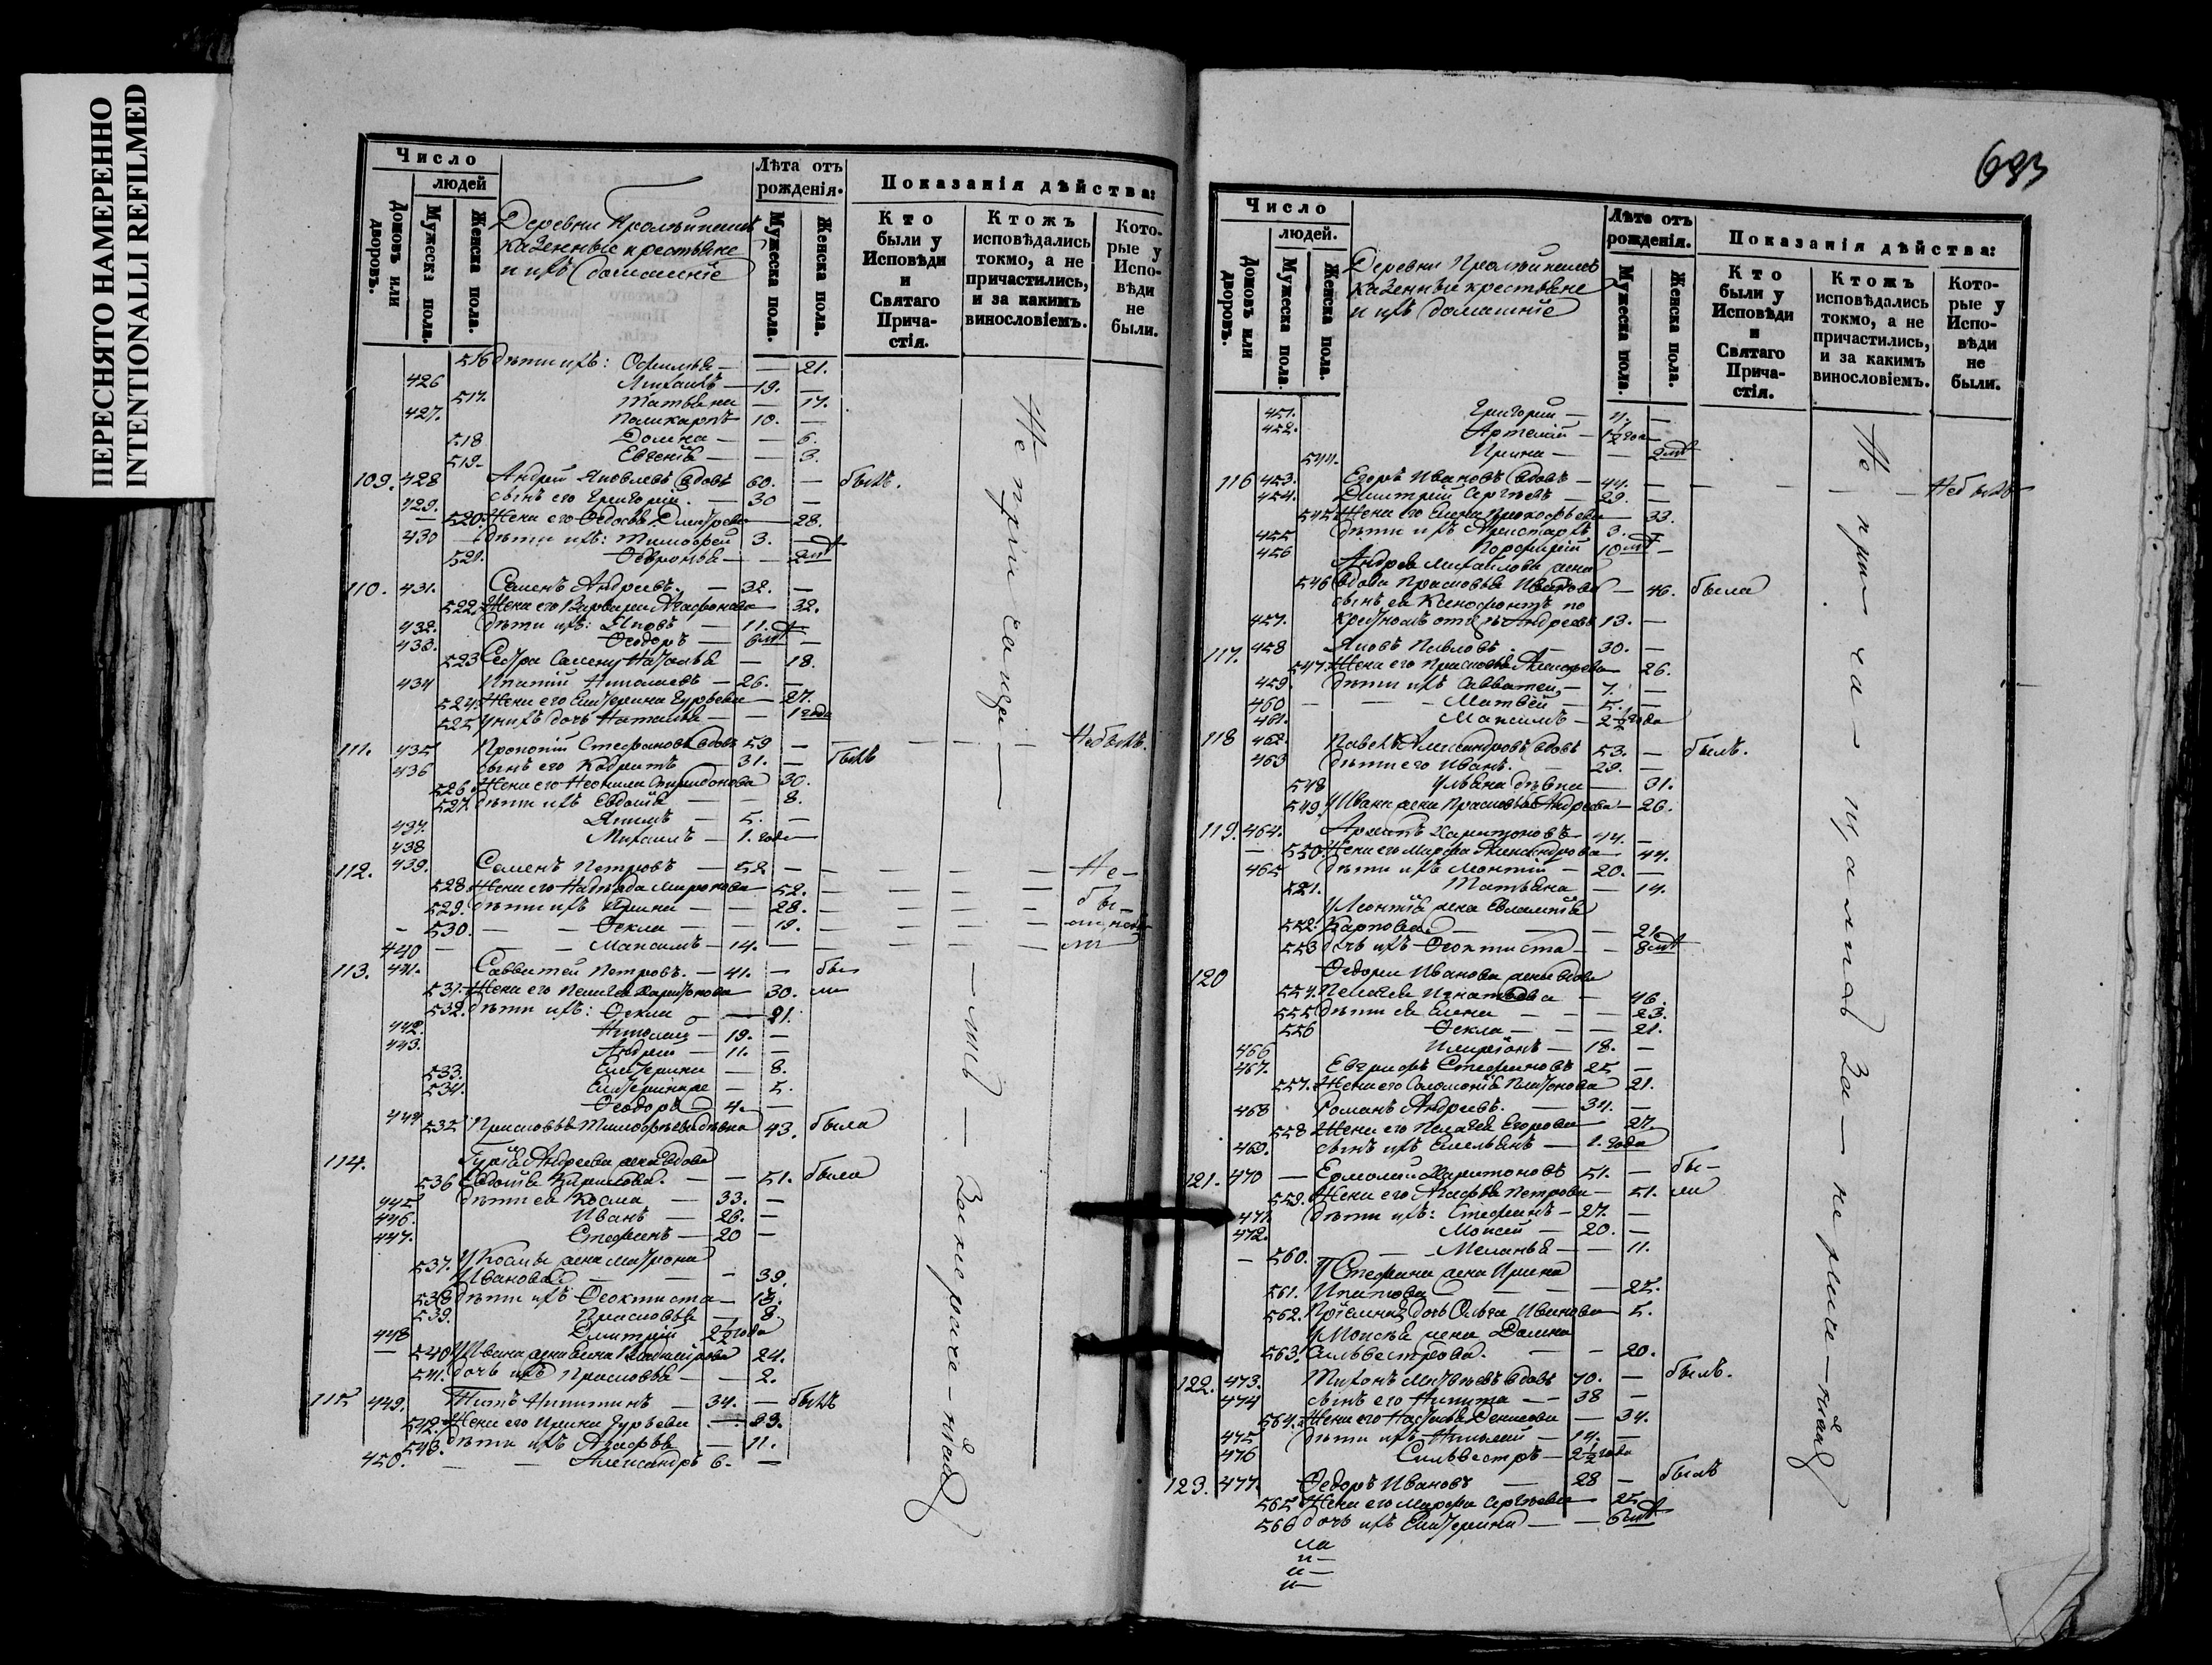 ПЕРЕСНЯТО НАМЕРЕННО
INTENTIONALLI REFILMED
Число
людей
Домовъ или дворовъ.
Мужеска пола.
Женска пола.
казенные крестьяне
и ихъ домашніе
Лѣта отъ рожденія.
Мужеска пола.
Женска пола.
Показанія дѣйства:
Кто были у Исповѣди и Святаго Прича-стія.
Ктожъ исповѣдались токмо, а не причастились, и за какимъ винословіемъ.
Кото-рые у Испо-вѣди не были.
516 дѣти ихъ: Офимья — — 21.
426 Михаилъ — 19. —
517. Татьяна — 17.
427. Поликарпъ — 10. —
518 Домна — — 6.
519. Евгенія — — 3.
109. 428 Андрей Яковлевъ вдовъ 60. — былъ.
429. сынъ его Григорій. — 30 —
— 520. Жена его Ѳедосья — 28.
430 — дѣти ихъ: Тимофей 3. —
521. Февронья — —
110. 431. Семенъ Андреевъ. — 32. —
522. Жена его Варвара Агафонова — 32.
432. дѣти ихъ: Яковъ — 11. —
433. Ѳеодоръ — —
523 Сестра Семену Наталья — 18.
434 Ипатій Николаевъ — 26. —
524. Жена его Екатерина Гурьева — 27.
525 у нихъ дочь Наталья — — 1 года
111. 435 Прокопій Стефановъ вдовъ 59 — — — — Небылъ.
436 сынъ его Кодратъ 31. — былъ
526 Жена его Неонила Спиридонова 30.
527. дѣти ихъ Евдокія — — 8.
437. Якимъ — 5. —
438 Михаилъ — 1. года —
112. 439. Семенъ Петровъ — 52 — — — — Не-
528. Жена его Надежда Миронова — 52. — — — — бы-
529. дѣти ихъ Ирина — — 28. — — — —
— 530. — — Ѳекла — — 19. — — — —
440 — — — Максимъ — 14. — — — —
113. 441. Савватей Петровъ. — 41. — бы-
531. Жена его Пелагея Харитонова 30. ли
532. дѣти ихъ: Ѳекла — — 21.
442. Николай — 19. —
443. Андрей — 11. —
533. Екатерина — 8.
534. Екатерина же — 5.
444 Ѳеодоръ 4. —
535 Прасковья Тимофеева дѣвка 43. была
114. Гурія Андреева жена вдова
536 Евдокія Кирилова. — — 51. была
445 дѣти ея Косма — 33. —
446. Иванъ — 26. —
447. Стефанъ — 20 —
537. У Космы жена Матрона
Иванова — — — 39.
538 дѣти ихъ Ѳеоктиста — 13.
539. Прасковья — 8.
448 Дмитрій 2½ года
— 540 У Ивана жена Анна 24.
541. дочь ихъ Прасковья — — 2.
115 449. Титъ Никитинъ — 34. — былъ
542. Жена его Ирина Гурьева — 33.
543. дѣти ихъ Агафья — 11.
450. — — Александръ 6. —
693
Число
людей.
Домовъ или дворовъ.
Мужеска пола.
Женска пола.
казенные крестьяне
и ихъ домашніе
Лѣта отъ рожденія.
Мужеска пола.
Женска пола.
Показанія дѣйства:
Кто были у Исповѣди и Святаго Прича-стія.
Ктожъ исповѣдались токмо, а не причастились, и за какимъ винословіемъ.
Кото-рые у Испо-вѣди не были.
451. Григорій — —
452. Артемій — 1½ года —
544. Ирина — —
116 453. Егоръ Ивановъ вдовъ — 44. — — — — Небылъ
454. Дмитрій Сергѣевъ — 29. —
545. Жена его Елена Прокофьева — 33.
455 дѣти ихъ Аристархъ 3. —
456 Порфирій 10 —
Андрея Михайлова жена
546 вдова Прасковья Иванова — 46. была
сынъ ея Ксенофонтъ по
457. крестномъ отцѣ Андреевъ 13. —
117. 458 Яковъ Павловъ. — 30. —
547. Жена его Прасковья 26.
459. дѣти ихъ Савватей — 7. —
460 — — — Матвей — 5. —
461. Максимъ — 2½ года
118 462. Павелъ Александровъ вдовъ 53. — былъ.
463 дѣти его Иванъ. — 29. —
548 Ульяна дѣвка — 31.
549. У Ивана жена Прасковья Андреева — 26.
119. 464. Архипъ Харитоновъ — 44. —
— 550. Жена его Марфа Александрова 44.
465 дѣти ихъ Леонтій — 20. —
551. Татьяна — 14.
У Леонтія жена Евлампія
552. Карпова — — — 21.
553 дочь ихъ Ѳеоктиста — — 8
120 Ѳедора Иванова жена вдова
554. Пелагея Игнатьева — 46.
555 дѣти ея Елена — — 23.
556 Ѳекла — — — 21.
466 Иларіонъ — 18. —
467. Евграфъ Стефановъ 25 —
557. Жена его Соломонія Платонова 21.
468 Романъ Андреевъ. — 34. —
558 Жена его Пелагея Егорова — 27.
469. сынъ ихъ Емельянъ — 1. года
121. 470 — Ермолай Харитоновъ 51. — бы-
559. Жена его Агафья Петрова — 51. ли
471. дѣти ихъ: Стефанъ — 27. —
472. Моисей — 20. —
— 560. — — Меланья — — 11.
У Стефана жена Ирина
561. Ипатова — — — 25.
562. Пріемная дочь Ольга Иванова 5.
У Моисея жена Домна
563. Сильвестрова. — — 20.
122. 473. вдовъ 70. — былъ.
474 сынъ его Никита — 38 —
564. Жена его Наталья Денисова — 34.
475 дѣти ихъ Николай — 14. —
476 Сильвестръ — 2½ года
123. 477. Ѳедоръ Ивановъ — 28 — былъ
565 Жена его Марфа Сергѣева 25
566 дочь ихъ Екатерина — — 6